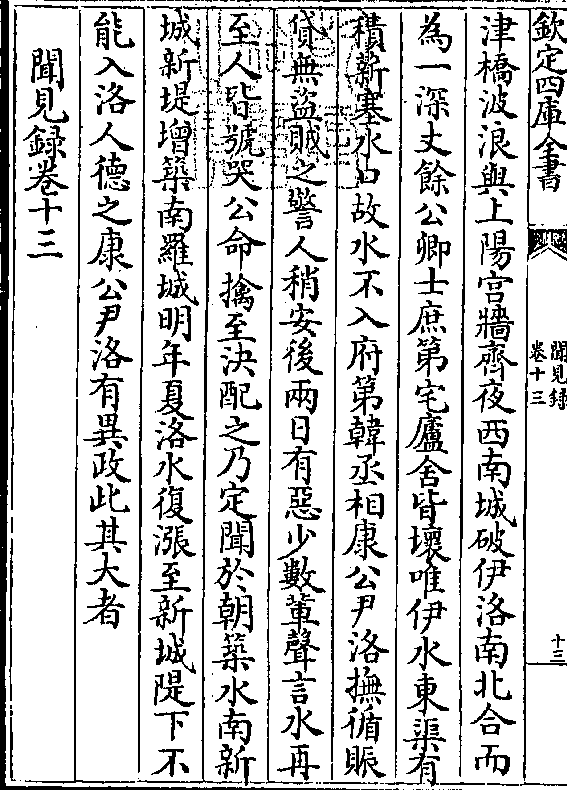 欽定四庫全書
聞見録
卷十三
十三
津橋波浪與上陽宫牆齊夜西南城破伊洛南北合而
為一深丈餘公卿士庶第宅廬舍皆壞唯伊水東渠有
積薪塞水口故水不入府第韓丞相康公尹洛撫循賑
貸無盜賊之警人稍安後兩日有惡少數輩聲言水再
至人皆號哭公命擒至決配之乃定聞於朝築水南新
城新堤增築南羅城明年夏洛水復漲至新城隄下不
能入洛人德之康公尹洛有異政此其大者
聞見録卷十三